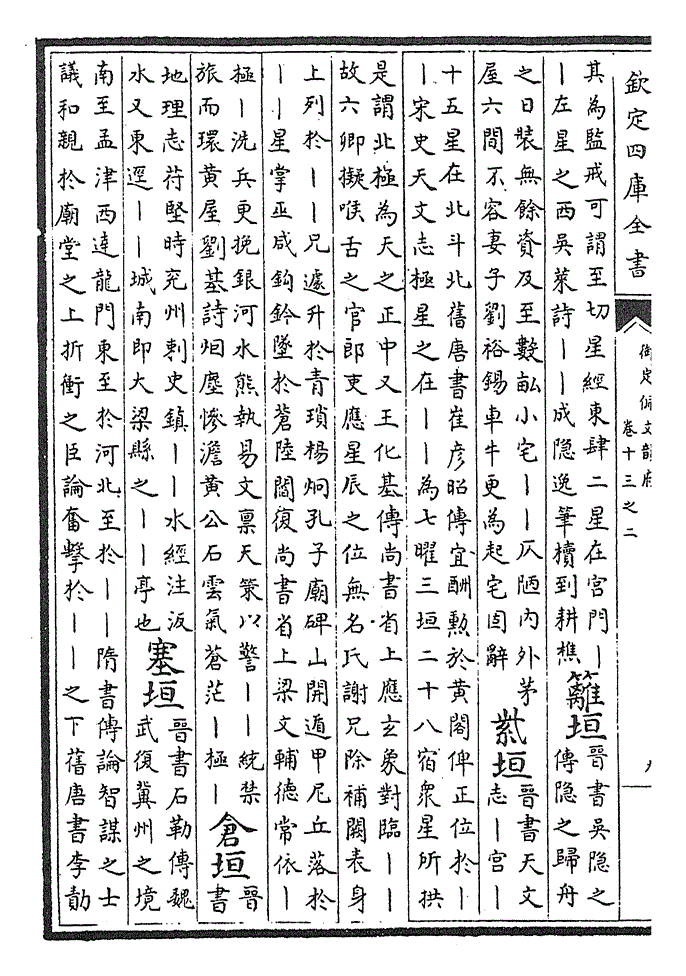 欽定四庫全書
御定佩文韻府
卷十三之二
九
其為監戒可謂至切星經東肆二星在宮門丨
丨左星之西吳萊詩丨丨成隱逸筆櫝到耕樵
籬垣
晉書吳隱之
傳隱之歸舟
之日裝無餘資及至數畝小宅丨丨仄陋内外茅
屋六間不容妻子劉裕錫車牛更為起宅固辭
紫垣
晉書天文
志丨宮丨
十五星在北斗北舊唐書崔彦昭傳宜酬勲於黄閣俾正位於丨
丨宋史天文志極星之在丨丨為七曜三垣二十八宿衆星所拱
是謂北極為天之正中又王化基傳尚書省上應玄象對臨丨丨
故六卿擬喉舌之官郎吏應星辰之位無名氏謝兄除補闕表身
上列於丨丨兄遽升於青瑣楊炯孔子廟碑山開遁甲尼丘落於
丨丨星掌巫咸鈎鈐墜於蒼陸閻復尚書省上梁文輔德常依丨
極丨洗兵更挽銀河水熊執易文稟天策以警丨丨統禁
旅而環黄屋劉基詩烟塵慘澹黄公石雲氣蒼茫丨極丨
倉垣
晉
書
地理志苻堅時兖州刺史鎮丨丨水經注汳
水又東逕丨丨城南即大梁縣之丨丨亭也
塞垣
晉書石勒傳魏
武復冀州之境
南至孟津西達龍門東至於河北至於丨丨隋書傳論智謀之士
議和親於廟堂之上折衝之臣論奮擊於丨丨之下舊唐書李勣